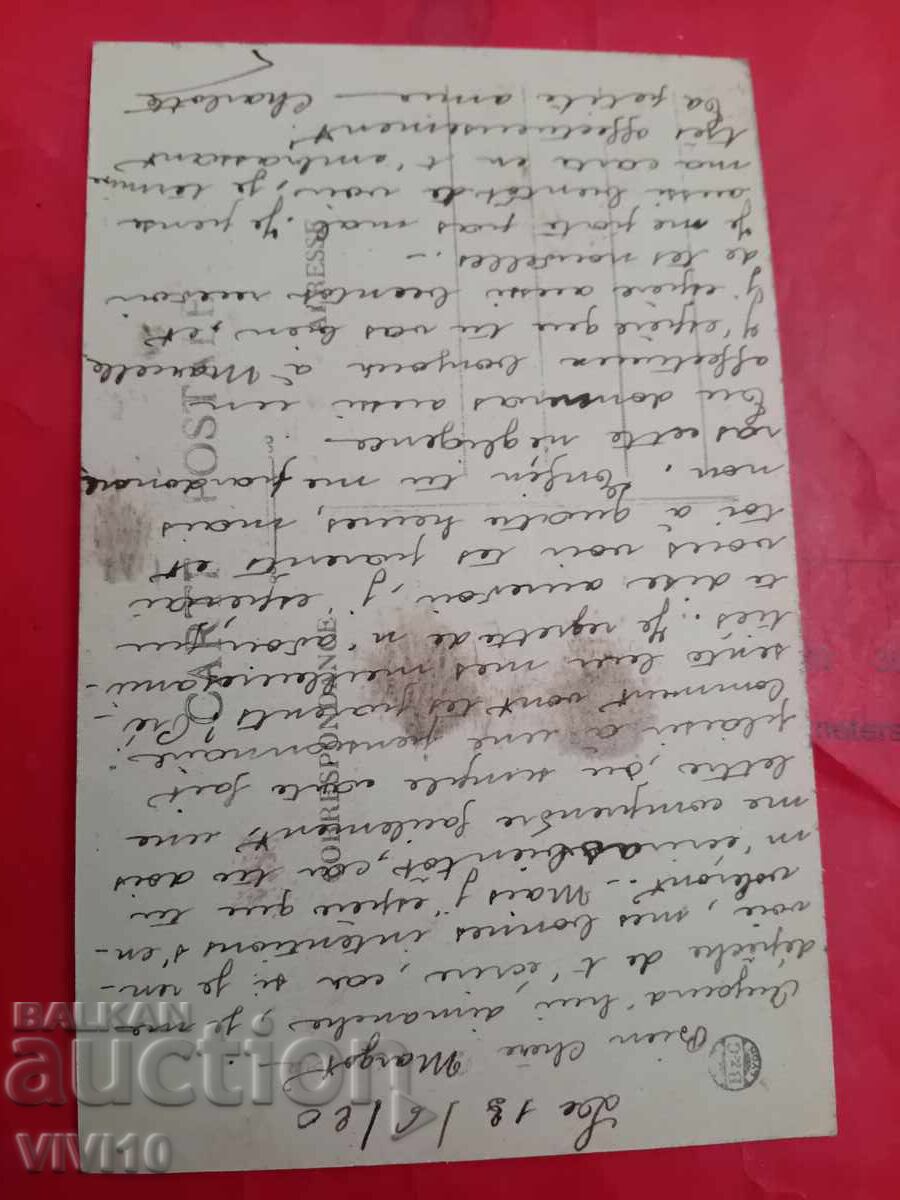 Le 13/6/20
Bien chère Margot. -
Aujourd'hui dimanche, je me
dépêche de t'écrire, car si je ren-
voie, mes bonnes intentions s'en-
voleront. - Mais j'espère que tu
m'écriras bientôt, car tu dois
me comprendre facilement, une
lettre, ou simple carte fait
plaisir à une pensionnaire.
Comment vont tes parents? Pré-
sente leur mes meilleures ami-
tiés. Je regrette de n'avoir pu
te dire aurevoir, j'esperai
vous voir tes parents et
toi à quatre heures, mais
non. Enfin tu me pardonne
ras cette négligence. -
Tu donneras aussi un
affectueux bonjour à Marcelle
J'espère que tu vas bien, et
J'espère aussi bientôt recevoir
de tes nouvelles. -
Je me porte pas mal. Je pense
aussi bientôt te voir, je termine
ma carte en t'embrassant
très affectueusement!
Ta petite amie - Charlotte
CARTE POSTALE
CORRESPONDANCE
ADRESSE
B&G
meters
BALKAN
auction
VIVI10